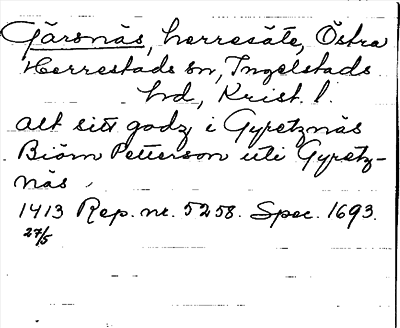 Gärsnäs, herresäte, Östra
Herrestads sn, Ingelstads
hd, Krist. l.
alt sitt godz i Gyretznäs
Biörn Petterson uti Gyretz-
näs.
1413 Rep. nr. 5258. Spec. 1693.
27/5